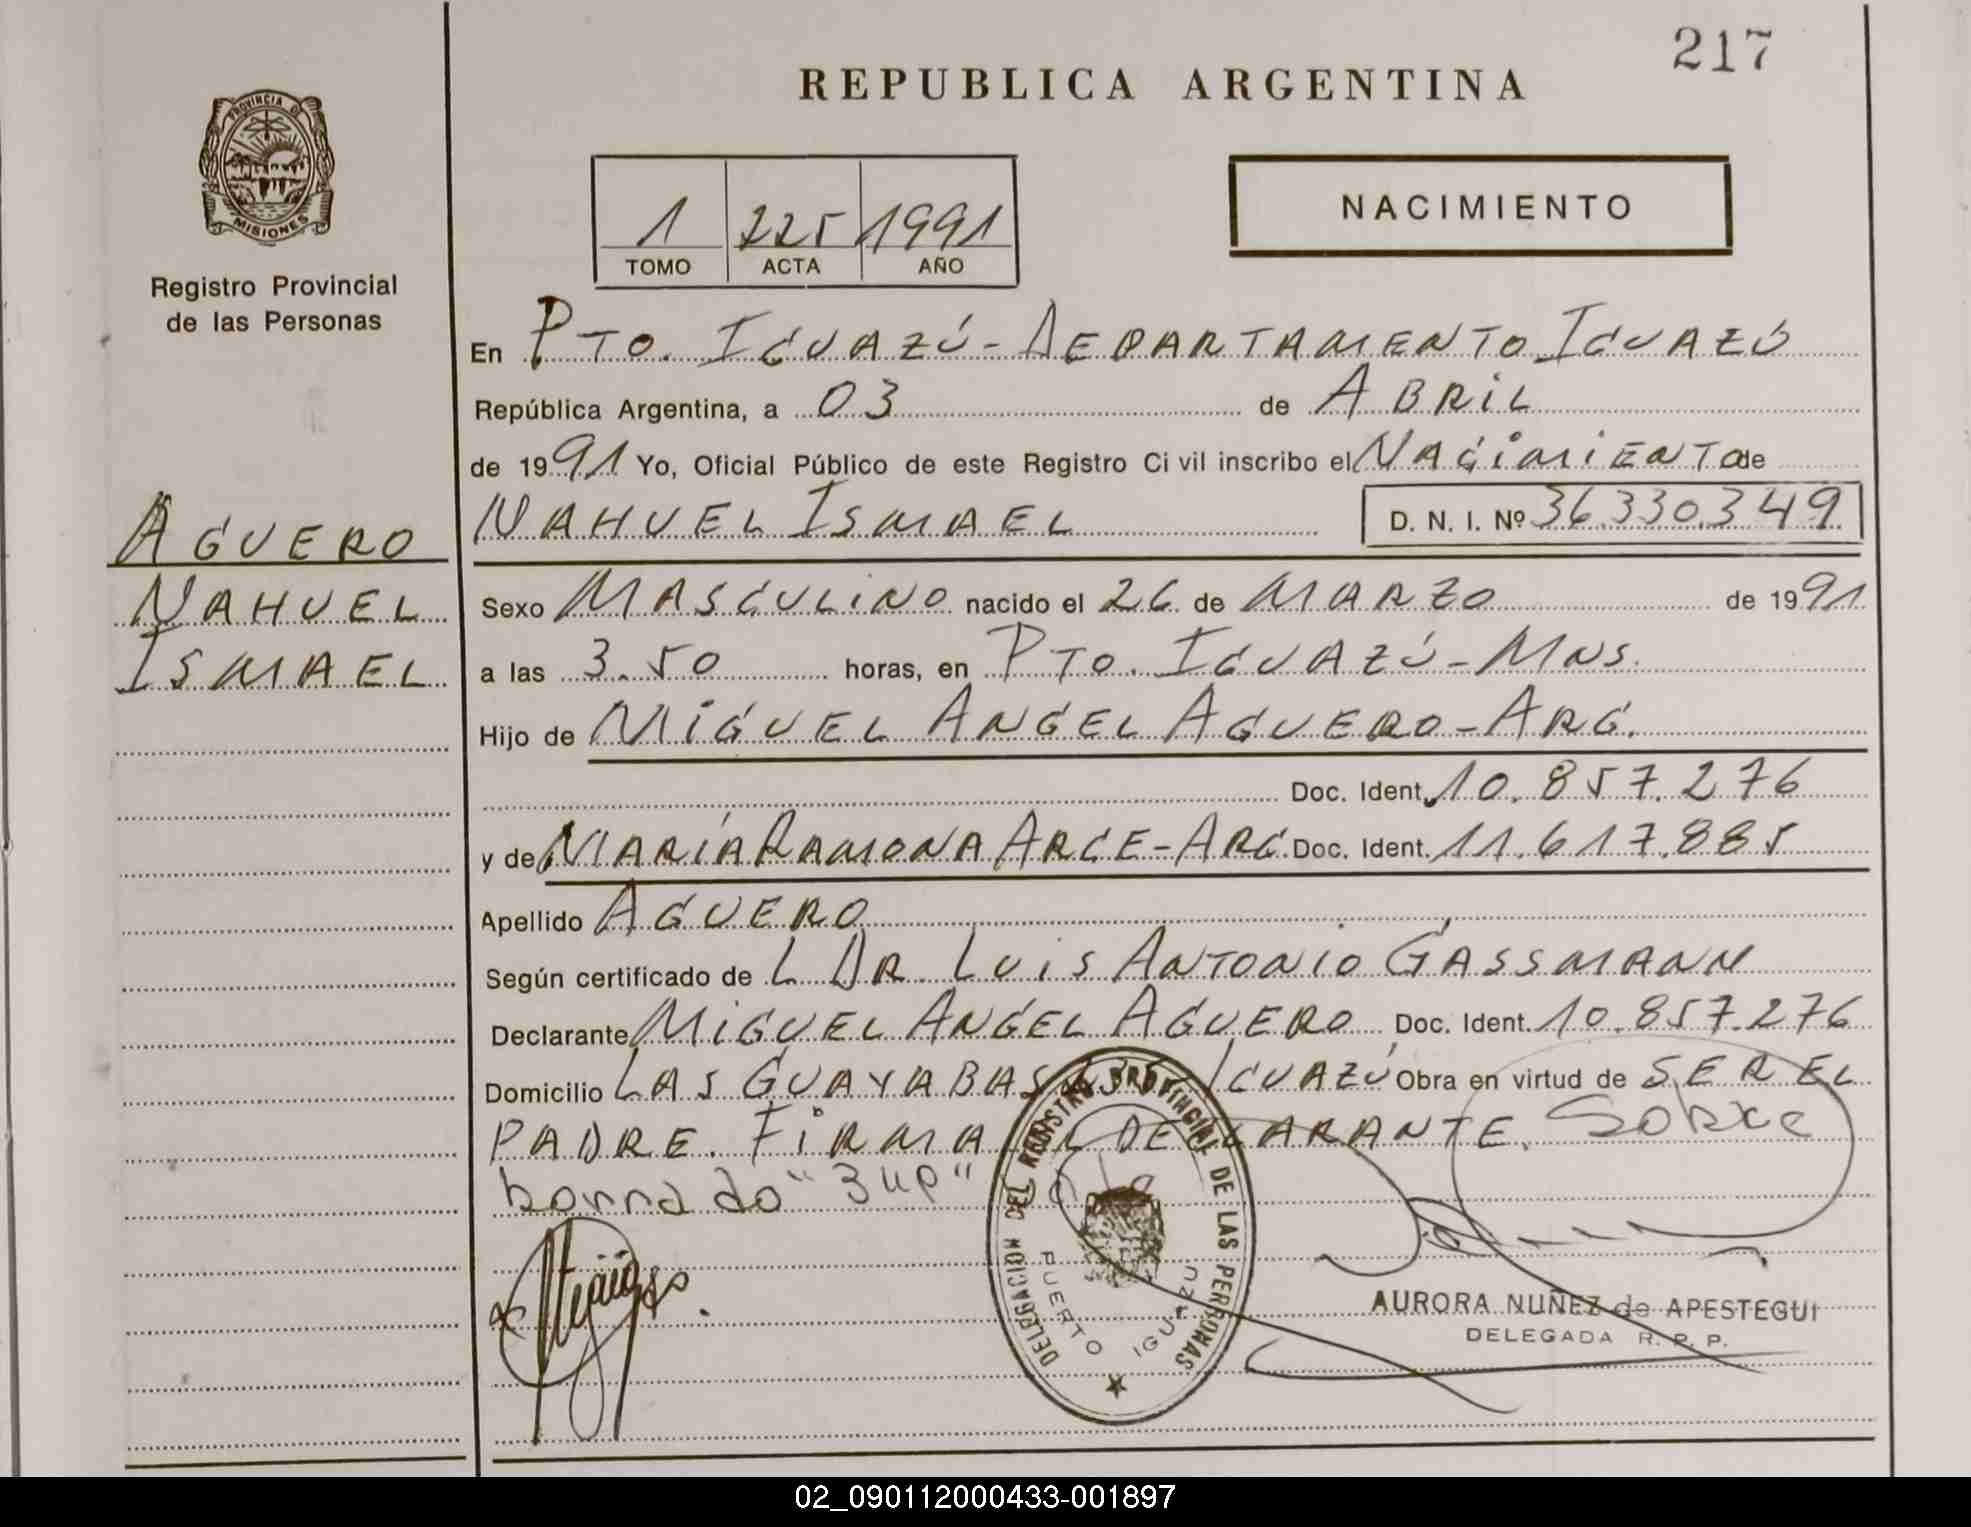 217
REPUBLICA ARGENTINA
PROVINCIA DE MISIONES
Registro Provincial
de las Personas
1 225 1991
TOMO ACTA AÑO
NACIMIENTO
En PTO. IGUAZÚ - DEPARTAMENTO IGUAZÚ
República Argentina, a 03 de ABRIL
de 1991 Yo, Oficial Público de este Registro Civil inscribo el NACIMIENTO de
NAHUEL ISMAEL D. N. I. Nº 36.330.349
AGUERO
NAHUEL
ISMAEL
Sexo MASCULINO nacido el 26 de MARZO de 1991
a las 3.50 horas, en PTO. IGUAZÚ - MNS.
Hijo de MIGUEL ANGEL AGUERO - ARG.
Doc. Ident. 10.857.276
y de MARÍA RAMONA ARCE - ARG. Doc. Ident. 11.617.885
Apellido AGUERO
Según certificado de L DR. LUIS ANTONIO GASSMANN
Declarante MIGUEL ANGEL AGUERO Doc. Ident. 10.857.276
Domicilio LAS GUAYABAS IGUAZÚ Obra en virtud de SER EL
PADRE. FIRMA DECLARANTE. Sobre
borrado
DELEGACION DEL REGISTRO PROVINCIAL DE LAS PERSONAS
PUERTO IGUAZU
AURORA NUÑEZ de APESTEGUI
DELEGADA R. P. P.
02_090112000433-001897